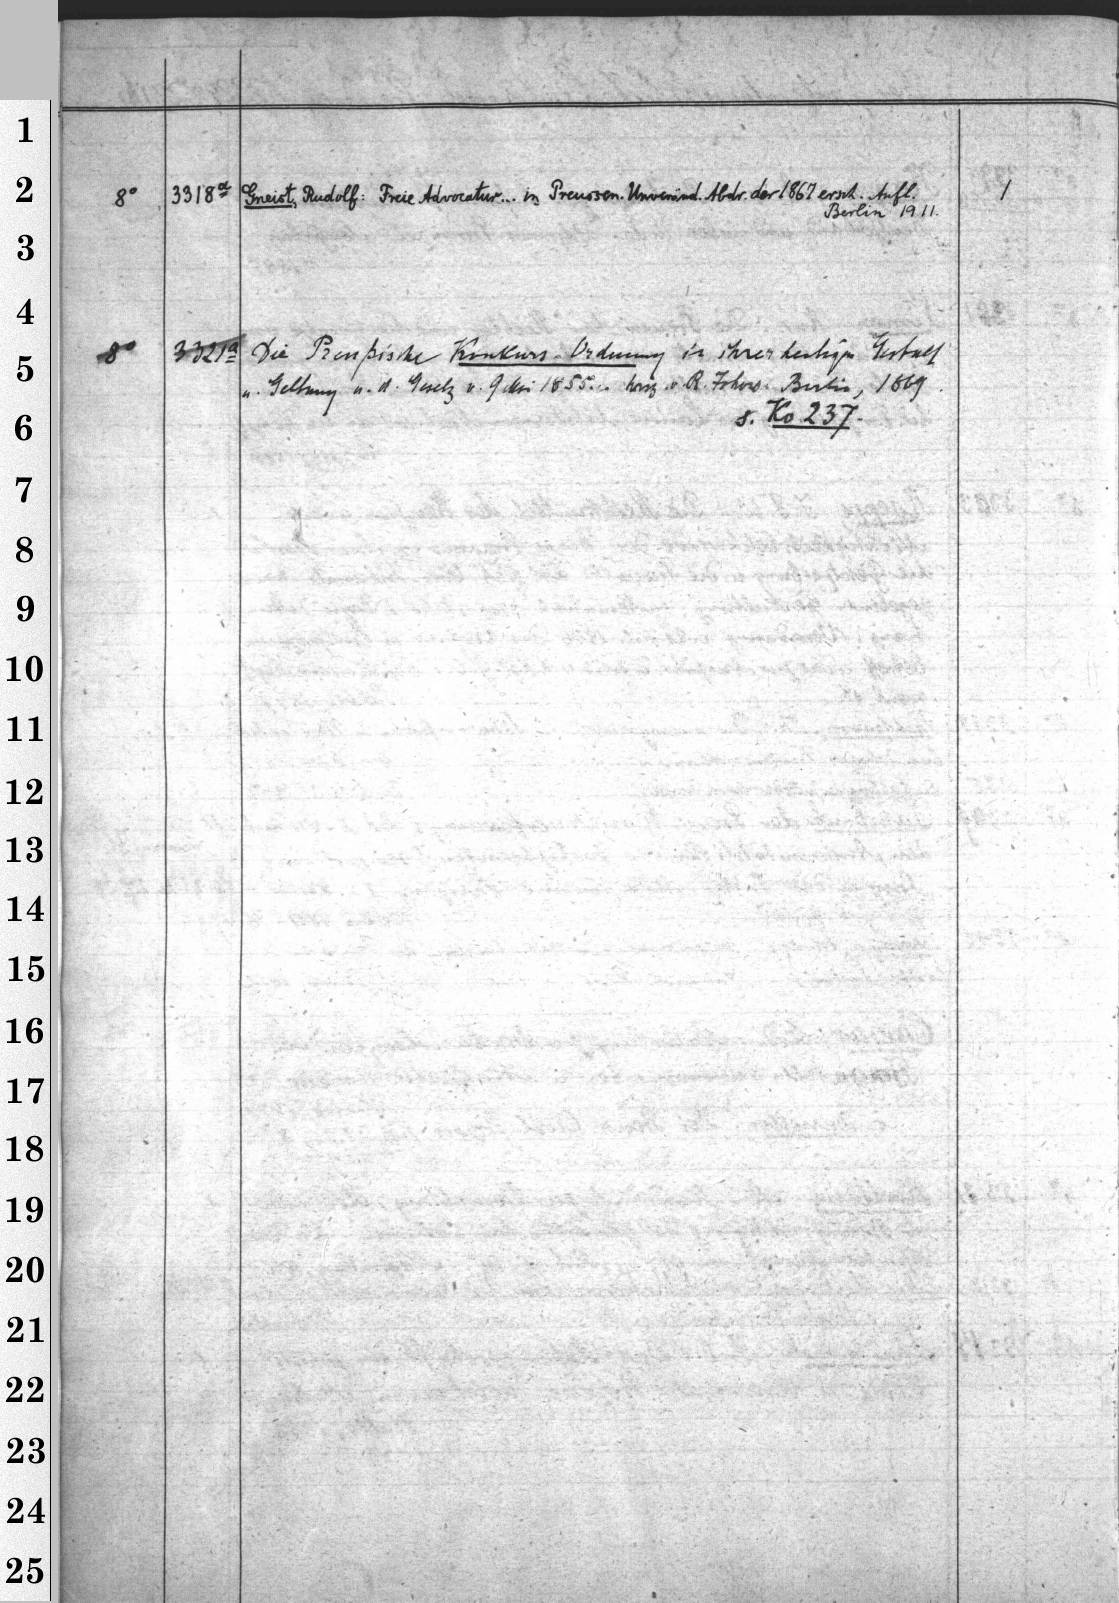 1
2
8° 3318ª Gneist, Rudolf: Freie Advocatur... in Preussen. Unveränd. Abdr. der 1867 ersch. Aufl. 1
Berlin 1911.
3
4
5
8° 3321ª Die Preußische Konkurs-Ordnung in ihrer heutigen Gestalt
u. Geltung u. d. Gesetz v. 9 Mai 1855... v. R. Berlin, 1869.
6
s. Ko 237.
7
8
9
10
11
12
13
14
15
16
17
18
19
20
21
22
23
24
25